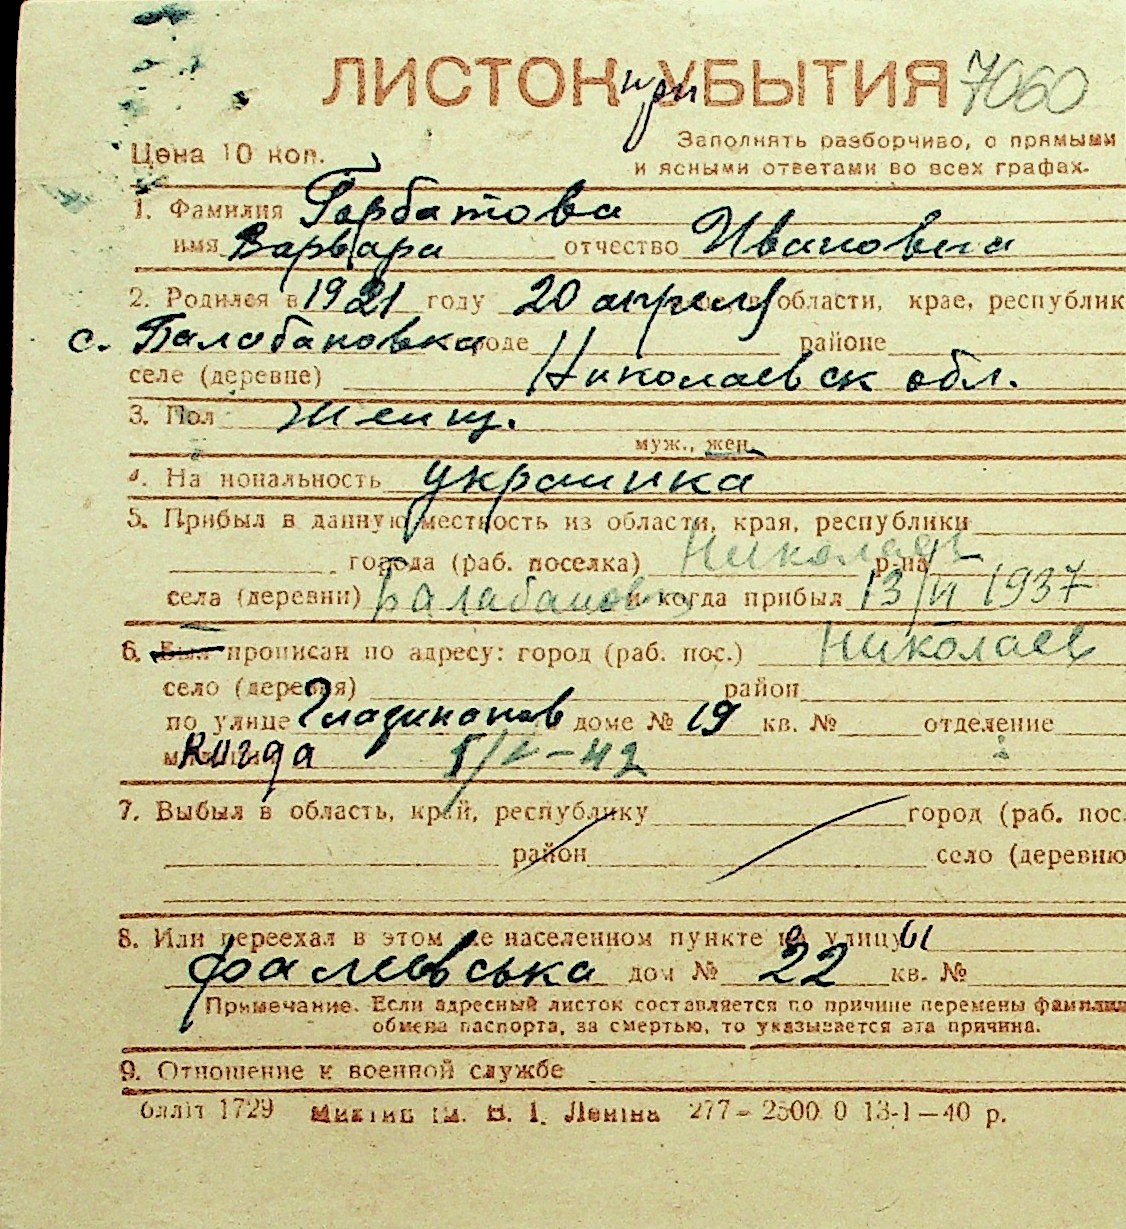 ЛИСТОК при УБЫТИЯ 7060
Цена 10 коп. Заполнять разборчиво, с прямыми
и ясными ответами во всех графах.
1. Фамилия Горбатова
имя Варвара отчество Ивановна
2. Родился в 1921 году 20 апреля области, крае, республик
с. Балабановка роде районе
селе (деревне) Николаевск обл.
3. Пол женщ.
муж., жен.
4. На иональность украинка
5. Прибыл в данную местность из области, края, республики
города (раб. поселка) Николаев р-на
села (деревни) Балабановка и когда прибыл 13/VI 1937
6. Был прописан по адресу: город (раб. пос.) Николаев
село (деревня) район
по улице доме № 19 кв. № отделение
когда 5/V-42
7. Выбыл в область, край, республику город (раб. пос.
район село (деревню
8. Или переехал в этом же населенном пункте на улицу
Фалеевська дом № 22 кв. №
Примечание. Если адресный листок составляется по причине перемены фамилии
обмена паспорта, за смертью, то указывается эта причина.
9. Отношение к военной службе
блліт 1729 ім. В. І. Леніна 277–2500 0 13-1–40 р.